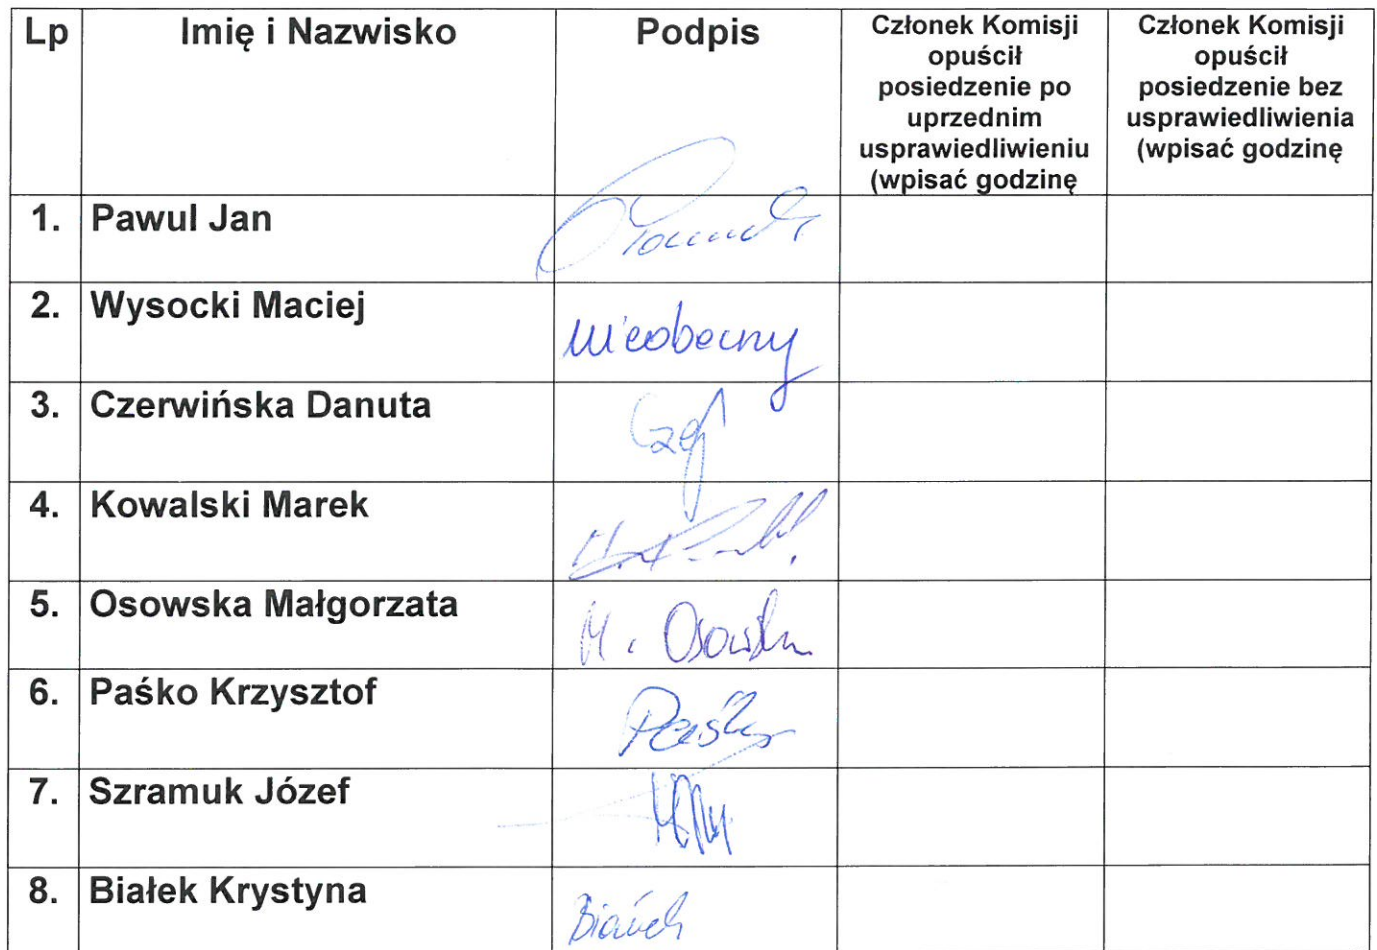 Lp Imię i Nazwisko Podpis Członek Komisji opuścił posiedzenie po uprzednim usprawiedliwieniu (wpisać godzinę Członek Komisji opuścił posiedzenie bez usprawiedliwienia (wpisać godzinę
1. Pawul Jan
2. Wysocki Maciej nieobecny
3. Czerwińska Danuta
4. Kowalski Marek
5. Osowska Małgorzata M. Osowska
6. Paśko Krzysztof Paśko
7. Szramuk Józef
8. Białek Krystyna Białek